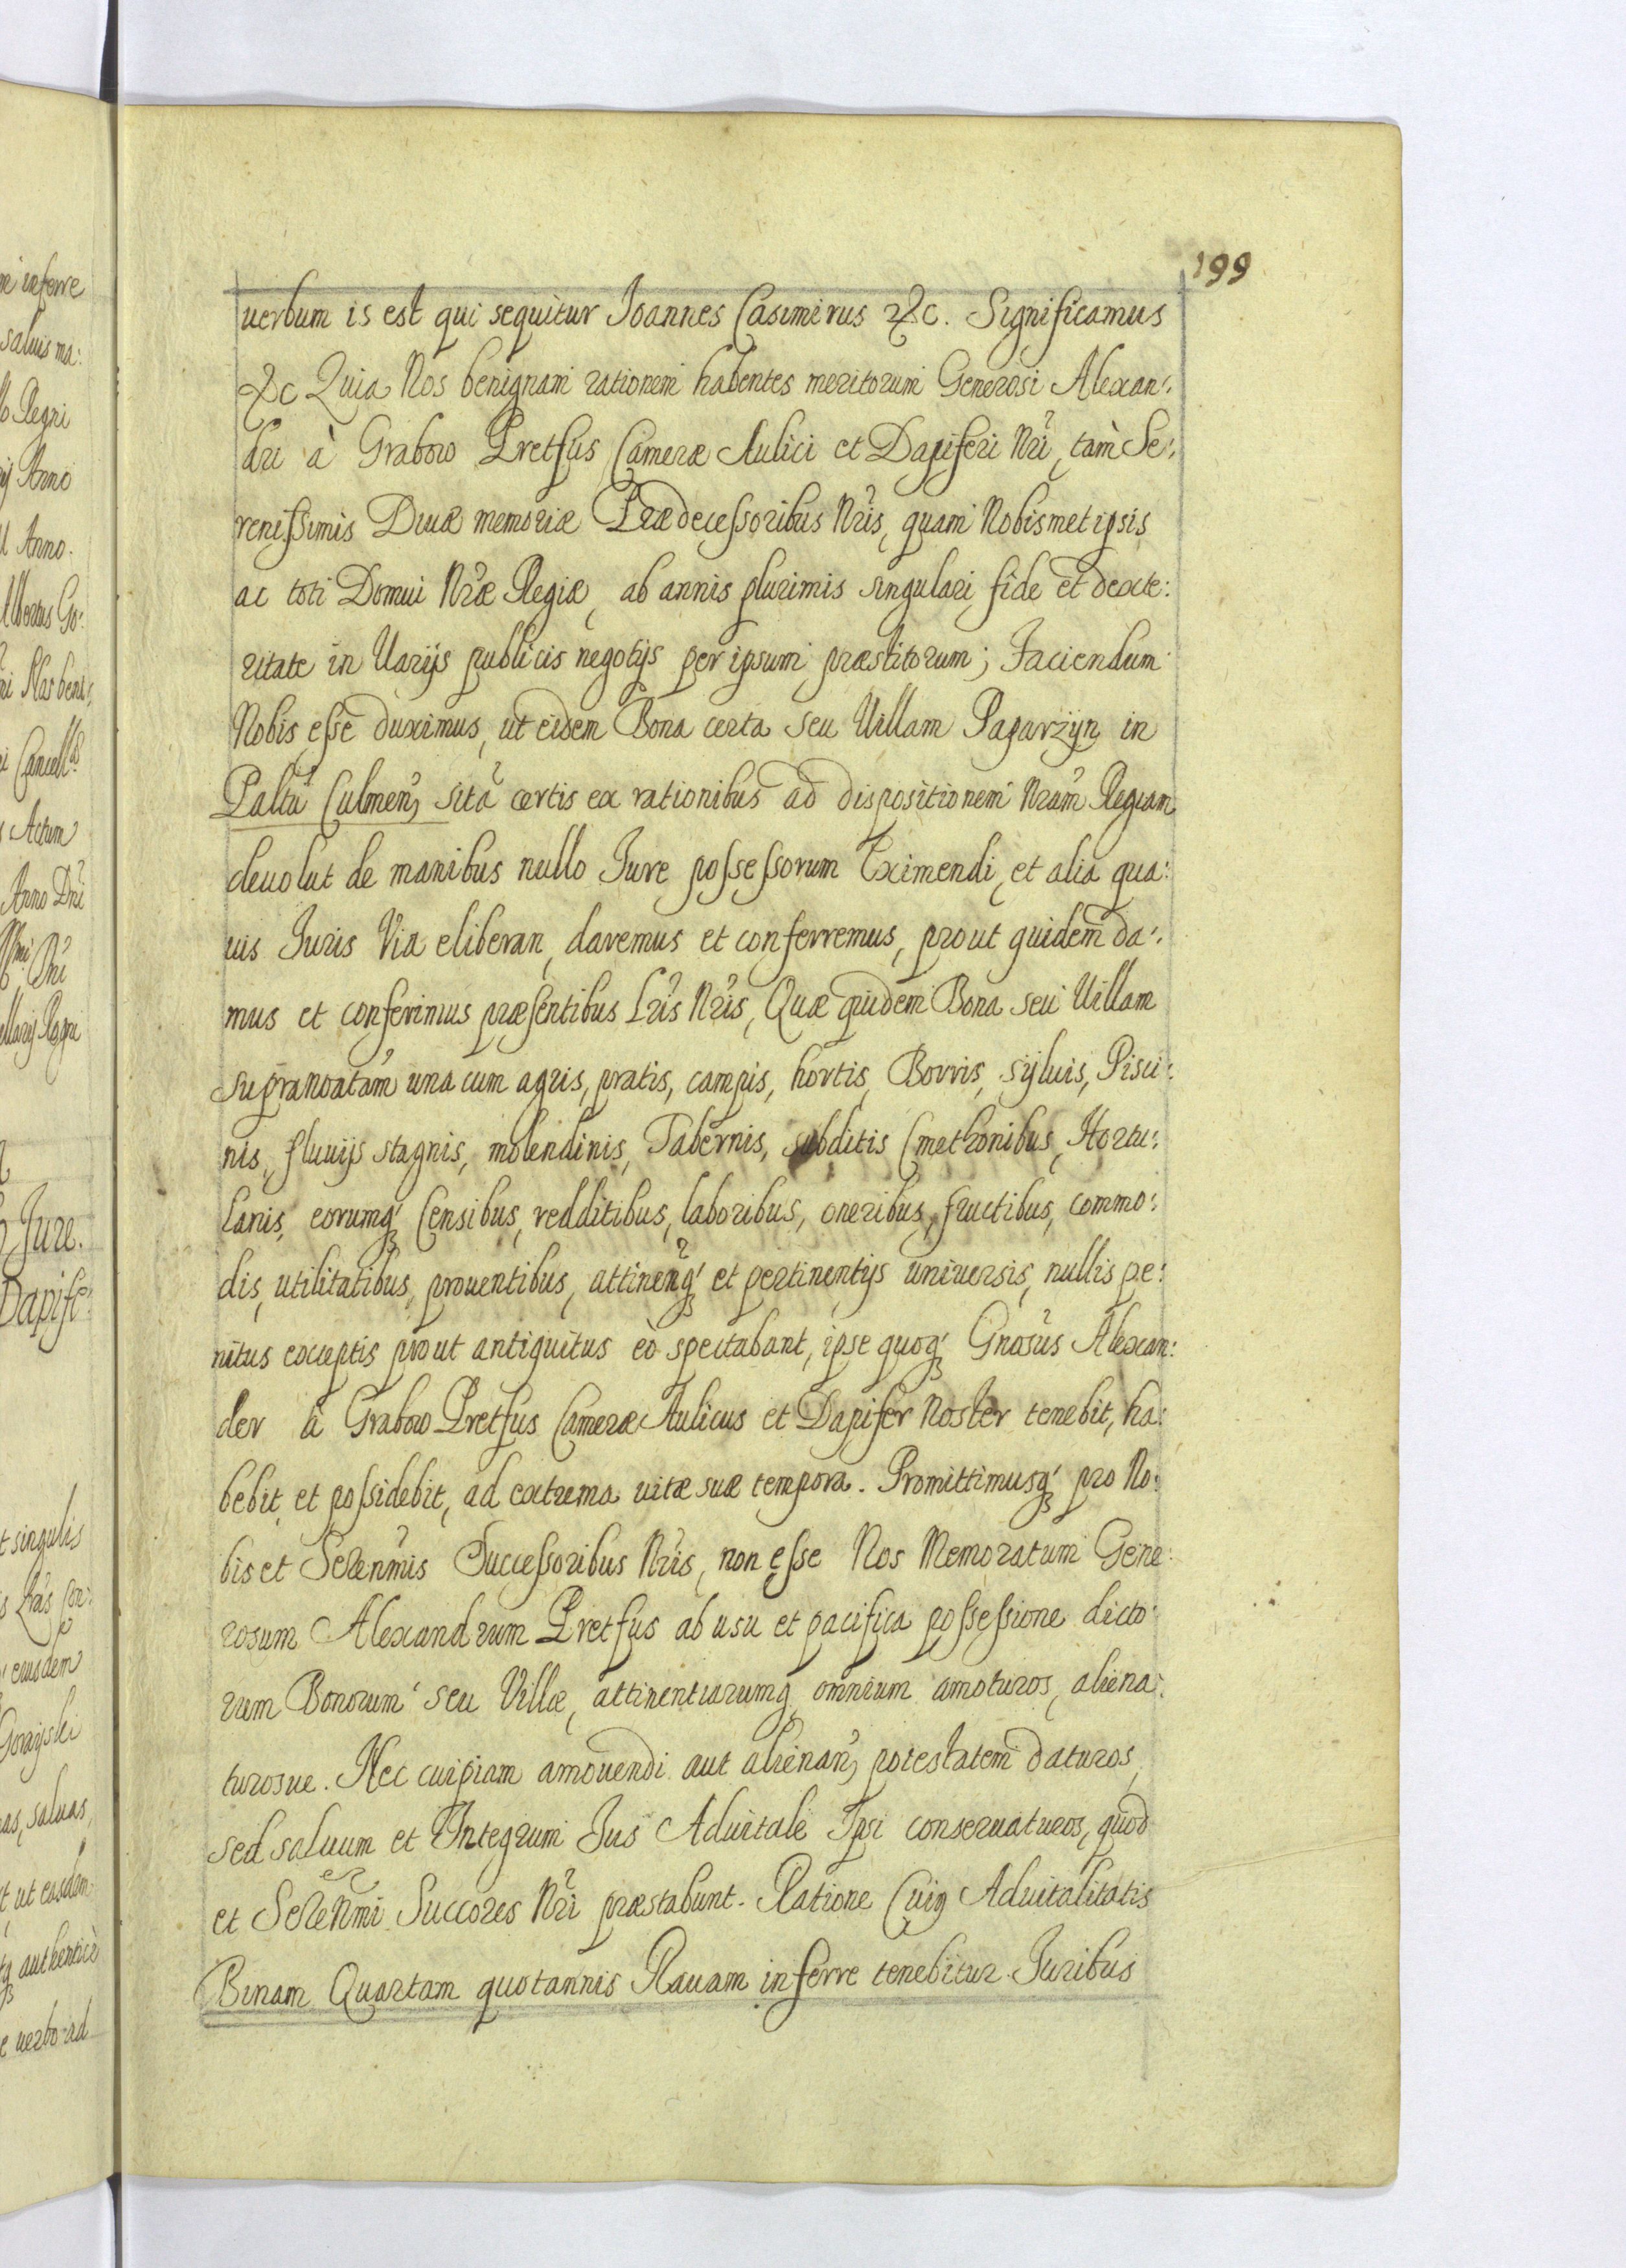 199
uerbum is est qui sequitur Ioannes Casimirus &c. Significamus
&c Quia Nos benignam rationem habentes meritorum Generosi Alexan:
dri à Grabow Pretfus Cameræ Aulici et Dapiferi Nri, tam Se:
renissimis Diuæ memoriæ Prædecessoribus Nris, quam Nobismet ipsis
ac toti Domui Nræ Regiæ, ab annis plurimis singulari fide et dexte:
ritate in Uarijs publicis negotijs per ipsum præstitorum; Faciendum
Nobis esse duximus, ut eidem Bona certa seu Uillam Paparzyn in
Paltu Culmen, sita certis ex rationibus ad dispositionem Nram Regiam
deuolut de manibus nullo Iure possessorum Eximendi, et alia qua:
uis Iuris Via eliberan, daremus et conferremus, prout quidem da:
mus et conferimus præsentibus Lris Nris, Quæ quidem Bona seu Uillam
supranoatam una cum agris, pratis, campis, hortis, Borris, syluis, Pisci:
nis, fluuijs stagnis, molendinis, Tabernis, subditis Cmethonibus, Hortu:
lanis, eorumq Censibus, redditibus, laboribus, oneribus, fructibus, commo:
dis, utilitatibus, prouentibus, attinenq et pertinentijs uniuersis, nullis pe:
nitus exceptis prout antiquitus eò spectabant, ipse quoq Gnosus Alexan:
der à Grabow Pretfus Cameræ Aulicus et Dapifer Noster tenebit, ha:
bebit, et possidebit, ad extrema uitæ suæ tempora. Promittimusq pro No:
bis et Serenmis Successoribus Nris, non esse Nos Memoratum Gene:
rosum Alexandrum Pretfus ab usu et pacifica possessione dicto:
rum Bonorum seu Villæ, attinentiarumq omnium amoturos, aliena:
turosue. Nec cuipiam amouendi aut alienan, potestatem daturos,
sed saluum et Integrum Ius Aduitale Ipsi conseruaturos, quod
et Serenmi Succores Nri præstabunt. Ratione Cuiq Aduitalitatis
Binam Quartam quotannis Rauam inferre tenebitur. Iuribus